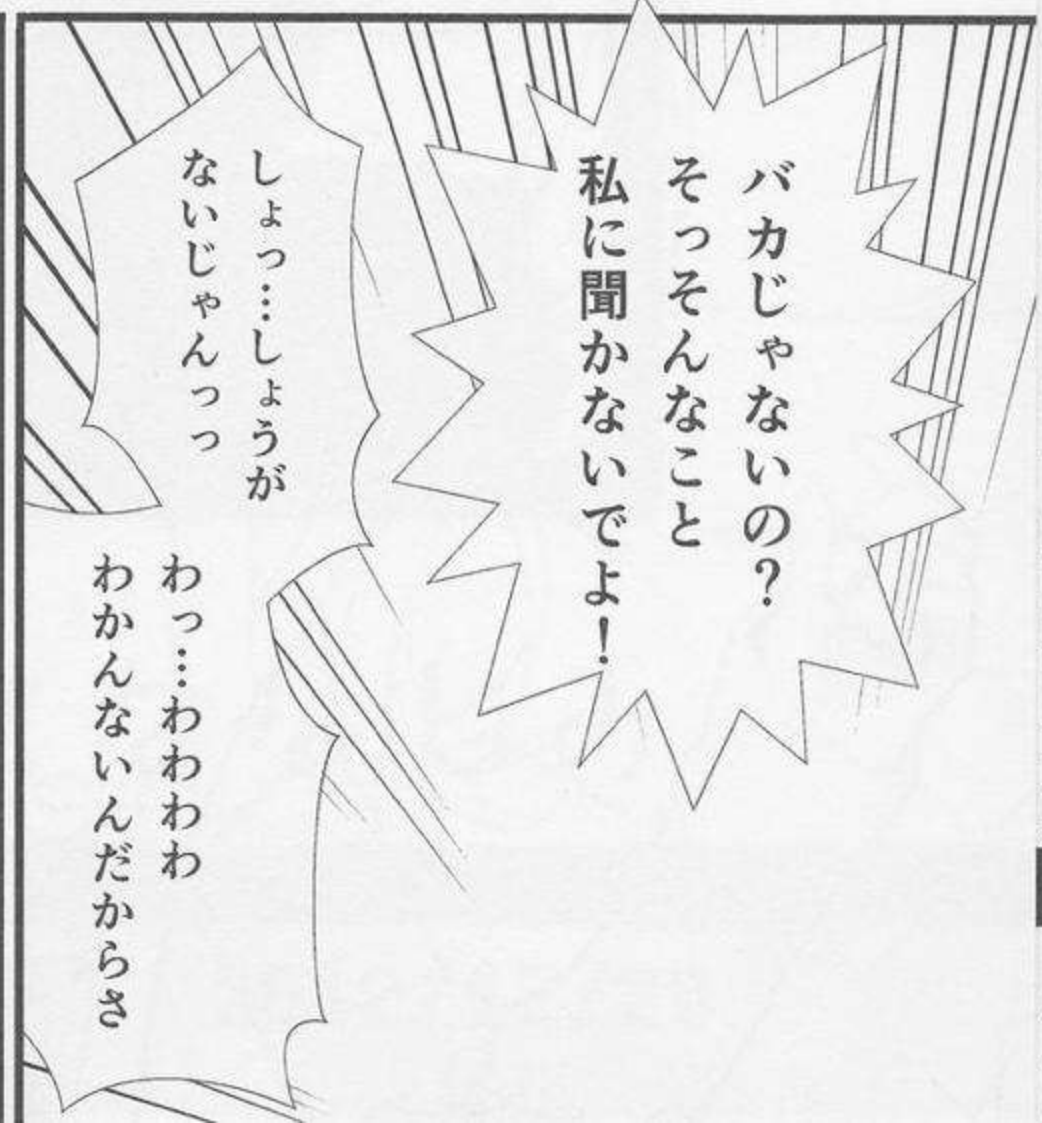 バカじゃないの？
そっそんなこと
私に聞かないでよ！
しょっ…しょうが
ないじゃんっっ
わっ…わわわわ
わかんないんだからさ